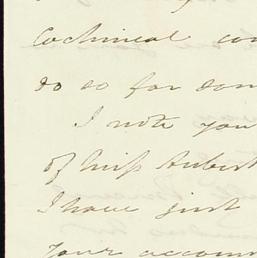 Cochineal con
do so for don
I note you
of Miss Aubert
I have just
your accoun